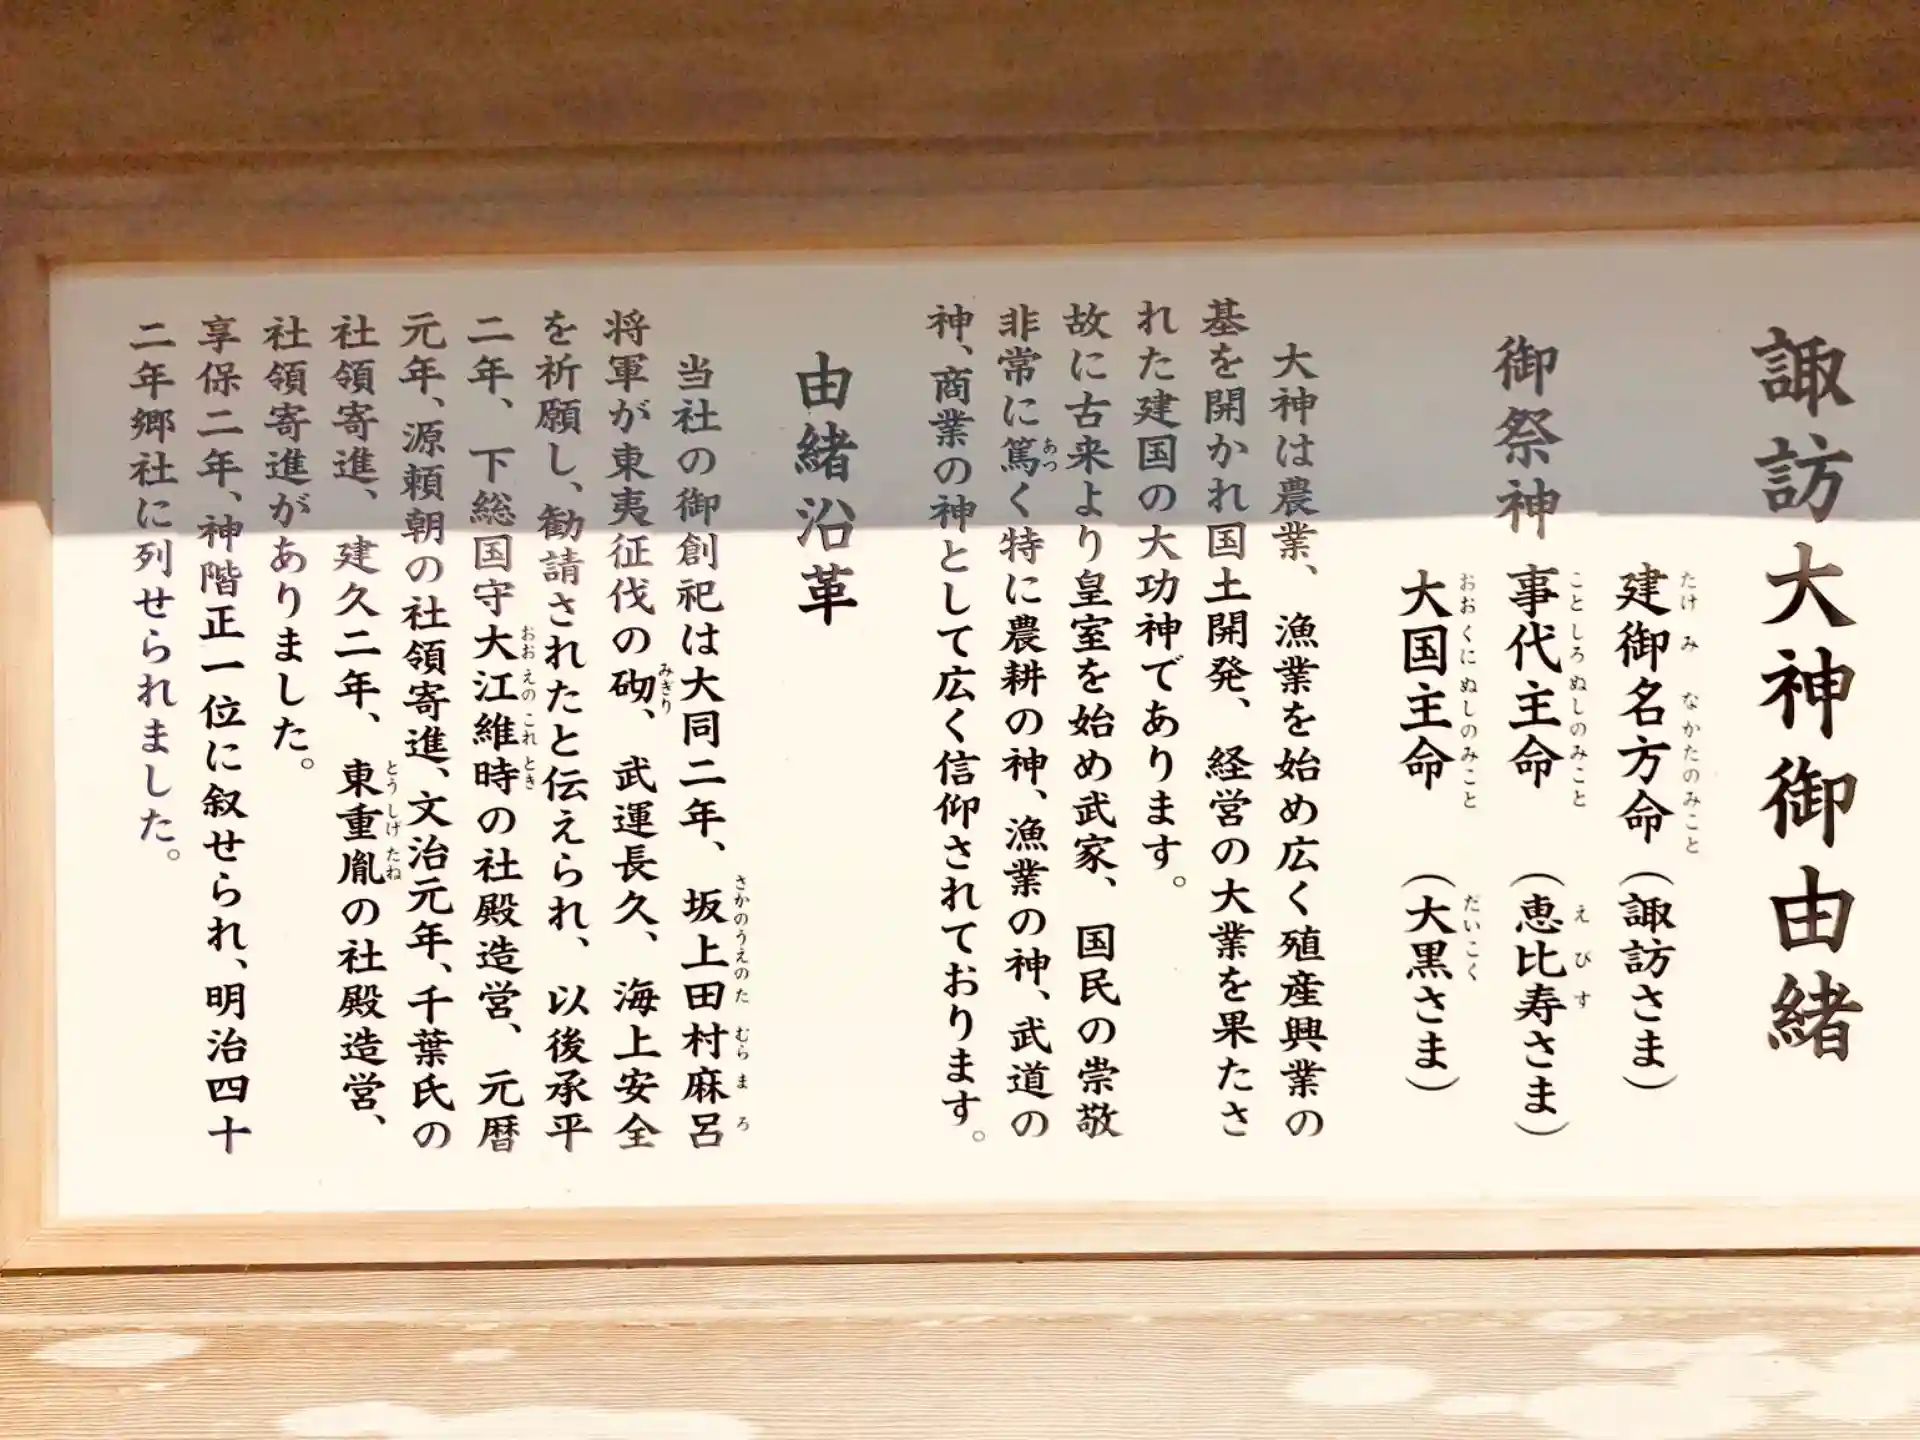 諏訪大神御由緒
御祭神
建御名方命（諏訪さま）
たけみなかたのみこと
事代主命（恵比寿さま）
ことしろぬしのみこと えびす
大国主命（大黒さま）
おおくにぬしのみこと だいこく
大神は農業、漁業を始め広く殖産興業の
基を開かれ国土開発、経営の大業を果たさ
れた建国の大功神であります。
故に古来より皇室を始め武家、国民の崇敬
非常に篤く特に農耕の神、漁業の神、武道の
あつ
神、商業の神として広く信仰されております。
由緒沿革
当社の御創祀は大同二年、坂上田村麻呂
さかのうえのたむらまろ
将軍が東夷征伐の砌、武運長久、海上安全
みぎり
を祈願し、勧請されたと伝えられ、以後承平
二年、下総国守大江維時の社殿造営、元暦
おおえのこれとき
元年、源頼朝の社領寄進、文治元年、千葉氏の
社領寄進、建久二年、東重胤の社殿造営、
とうしげたね
社領寄進がありました。
享保二年、神階正一位に叙せられ、明治四十
二年郷社に列せられました。